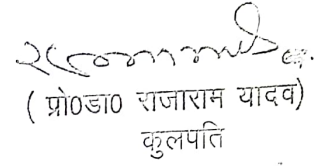 ( प्रो0डा0 राजाराम यादव)
कुलपति